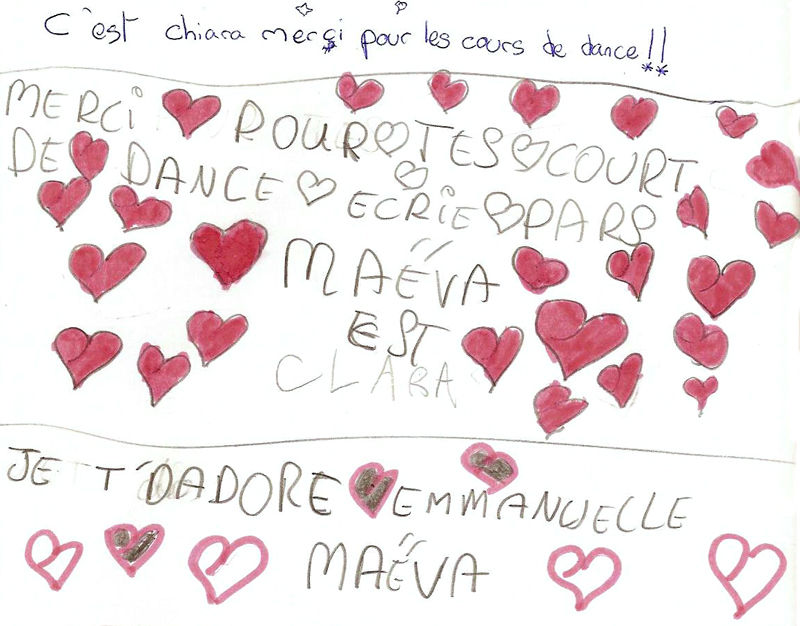 C'est chiara merçi pour les cours de dance !!
MERCi POUR TES COURT
DE DANCE ECRiE PARS
MAÉVA
EST
CLARA
JE T'DADORE EMMANUELLE
MAÉVA